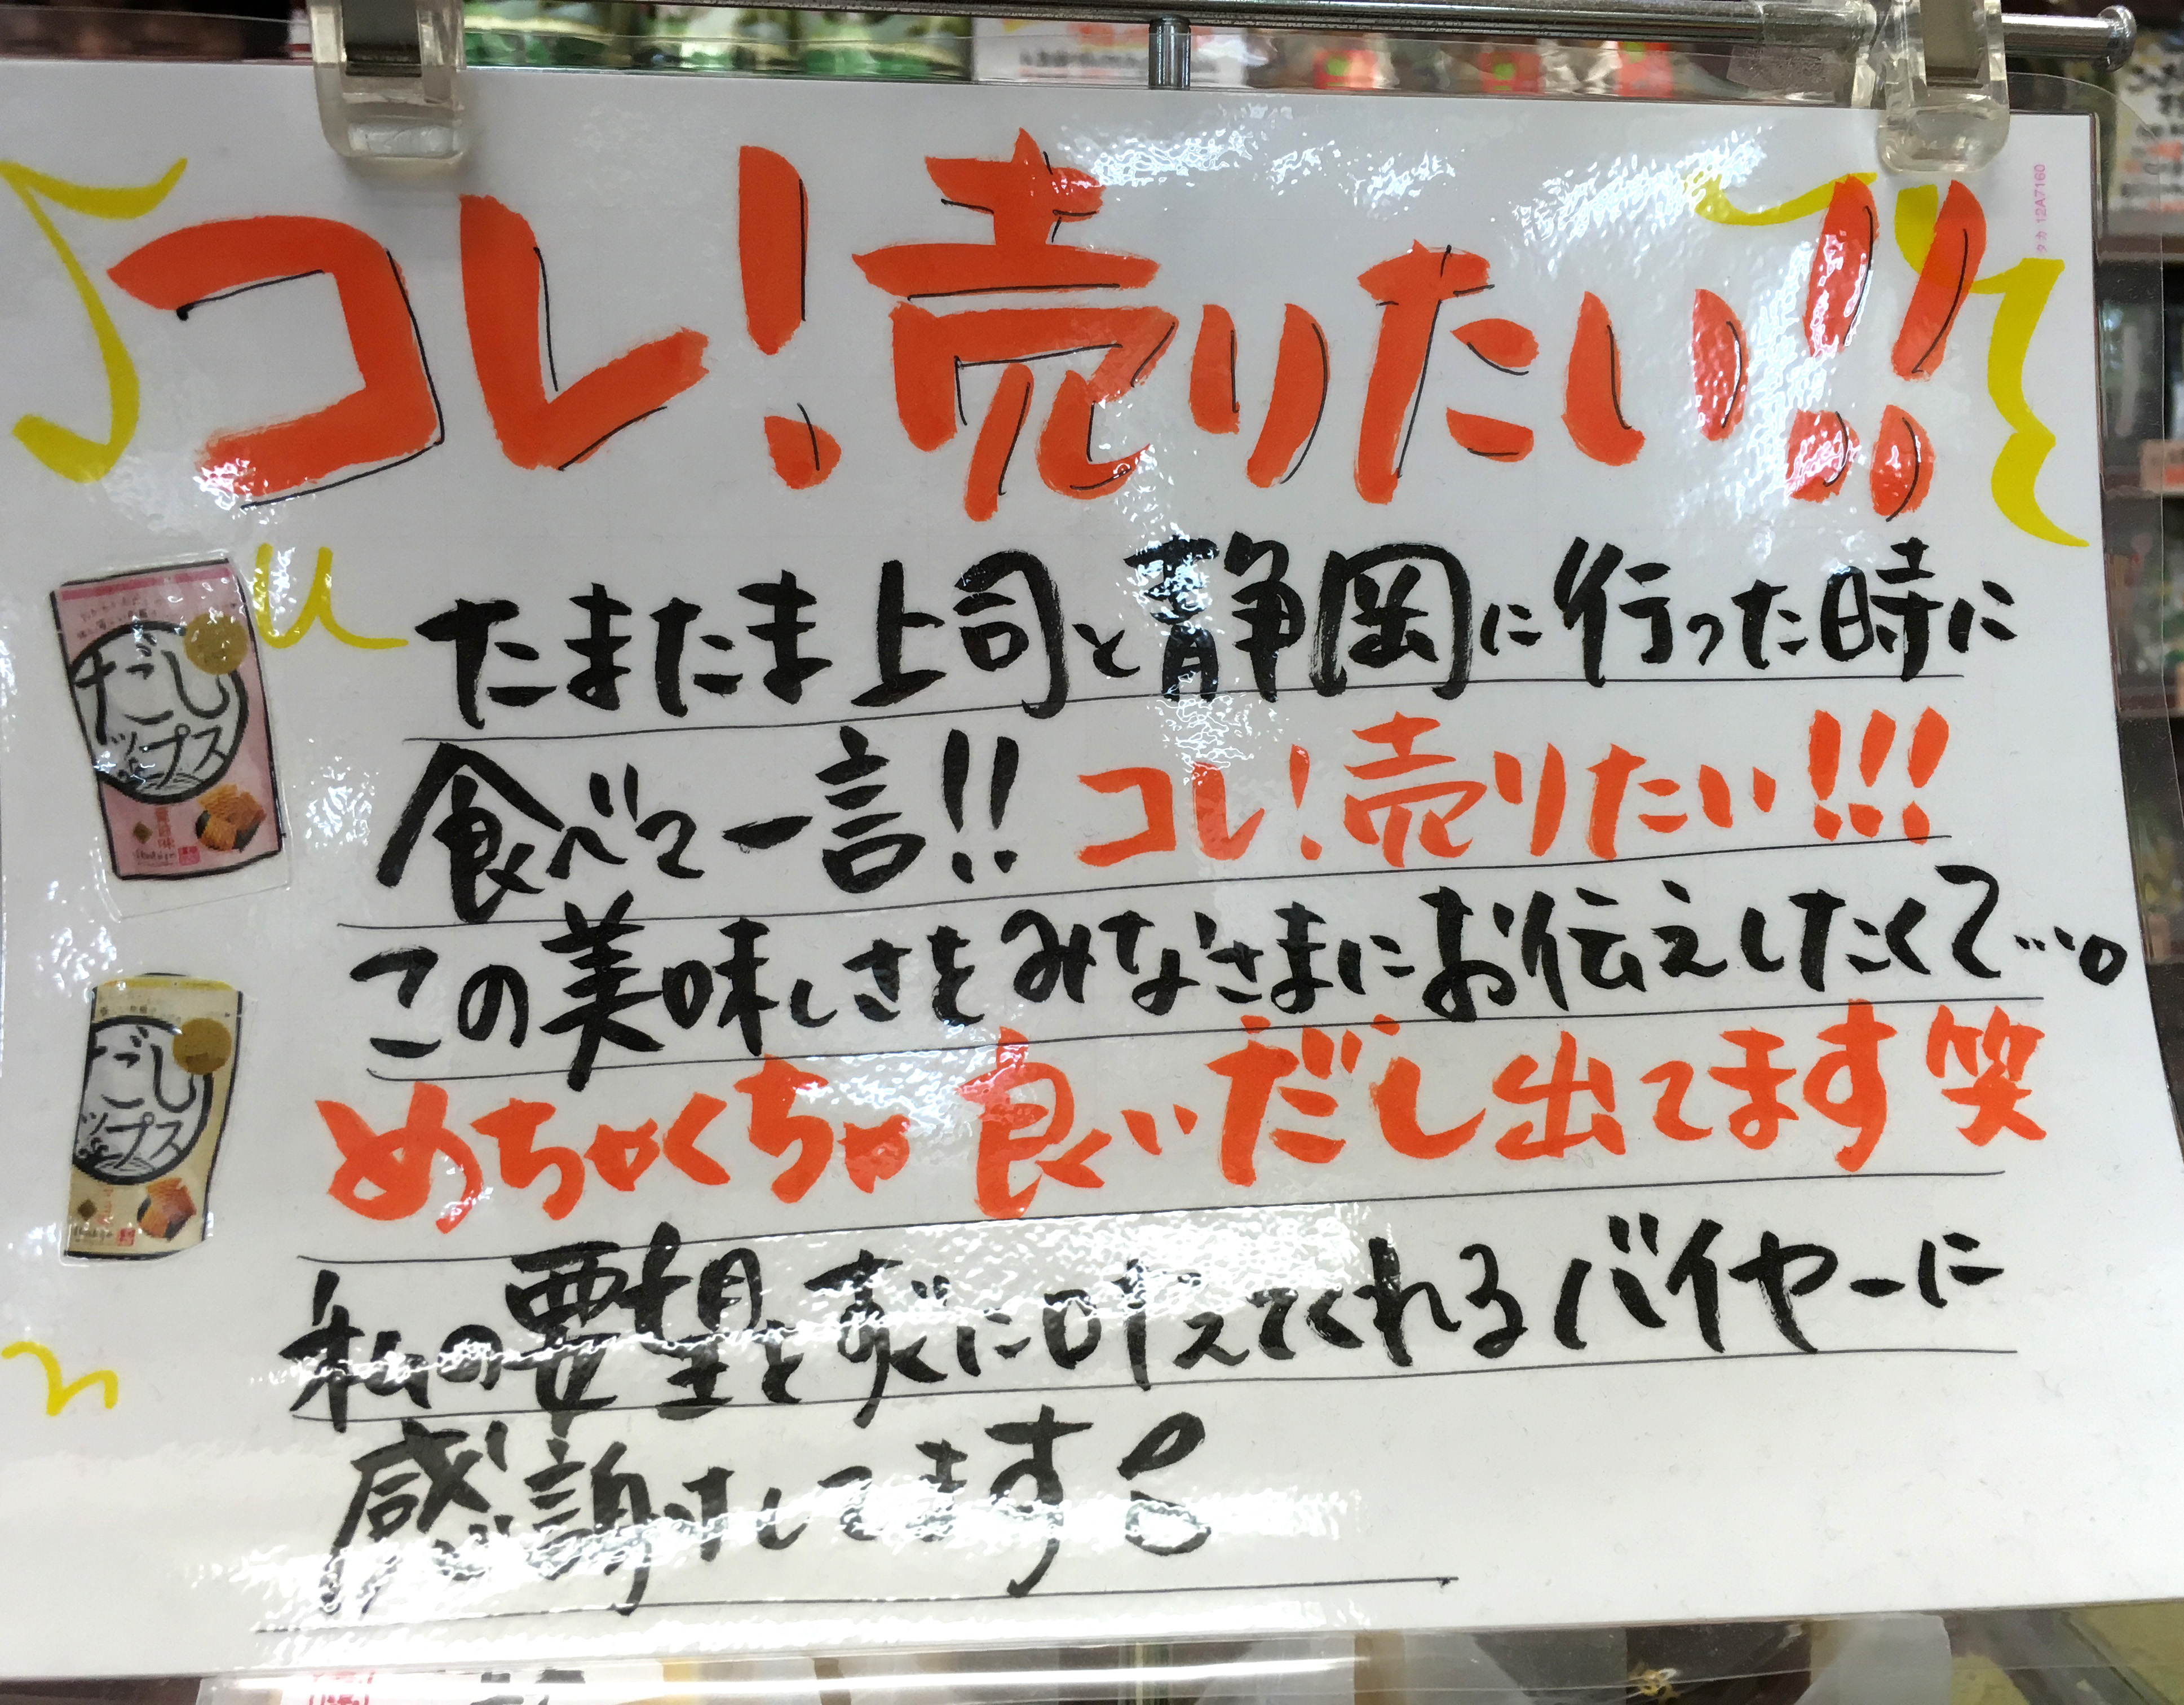 コレ!売りたい!!
タカ 12A7160
たまたま上司と静岡に行った時に
食べて一言!! コレ!売りたい!!!
この美味しさをみなさまにお伝えしたくて…。
めちゃくちゃ良いだし出てます笑
私の要望を直に叶えてくれるバイヤーに
感謝してます!
だし
ップス
だし
ップス